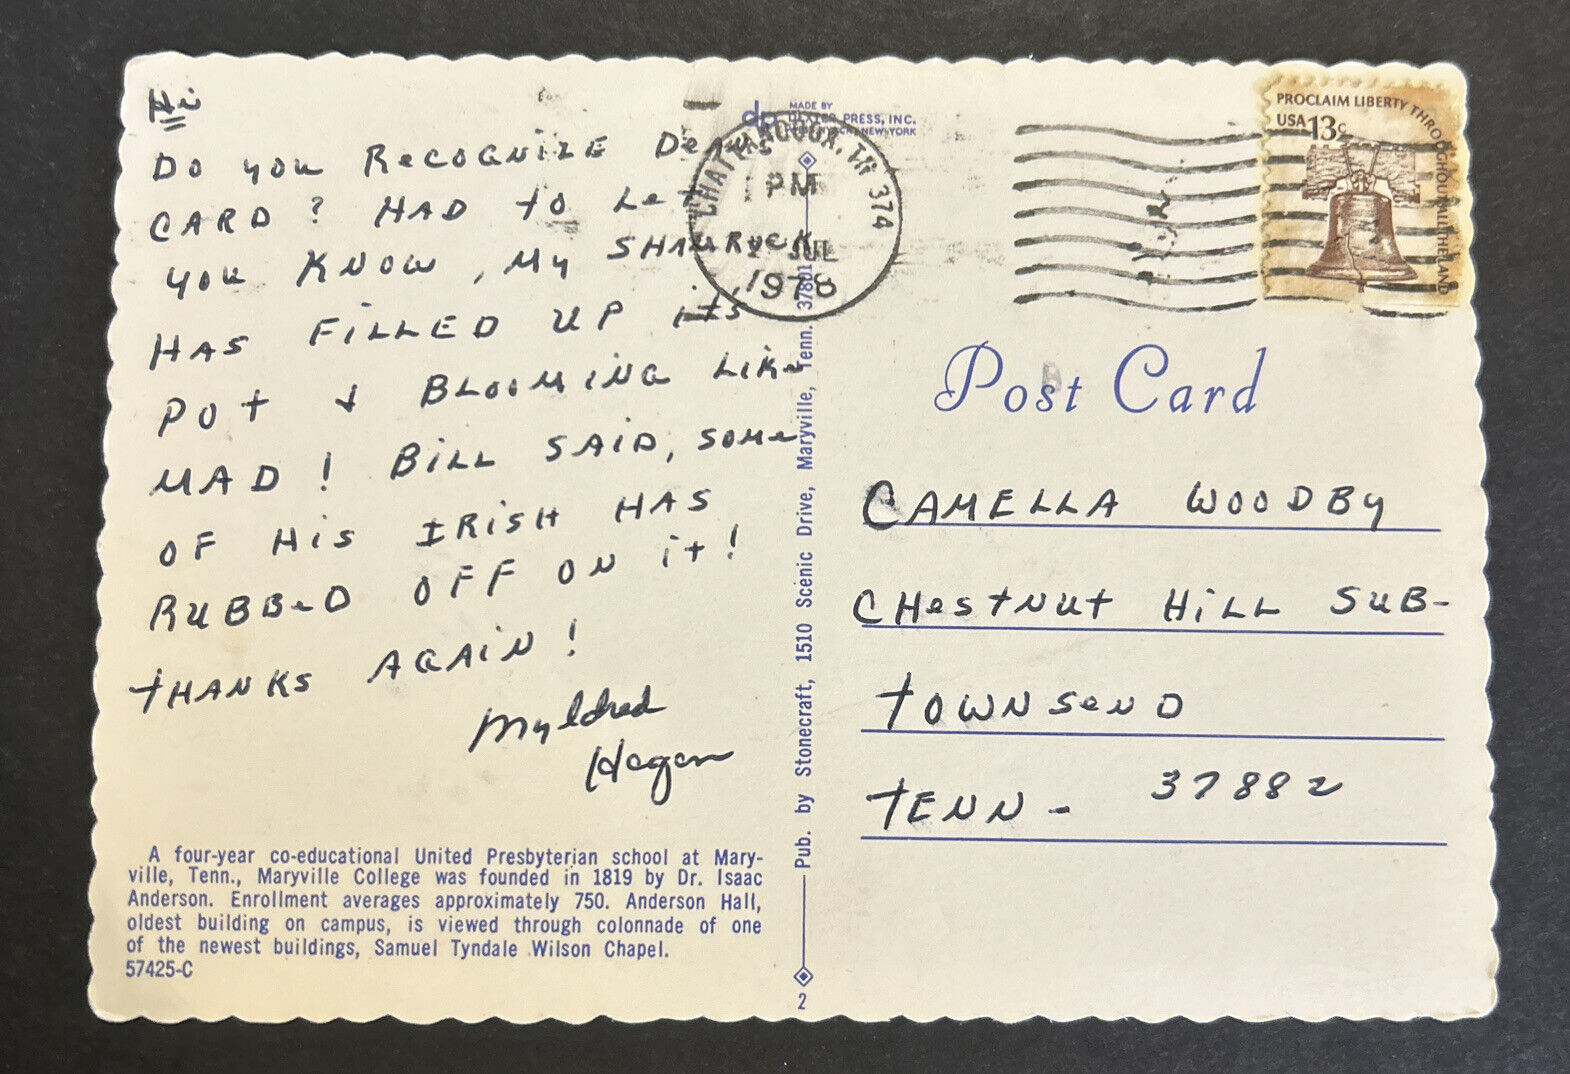 Hi
DO you RECOGNIZE DEANS
CARD? HAD to Let
you KNOW, My SHAMROCK
HAS FILLED UP its
POt + BLOOMING LIKe
MAD! BILL SAID, SOMe
OF HIS IRISH HAS
RUBBeD OFF ON it!
tHANKS AGAIN!
Myldred
Hagan
A four-year co-educational United Presbyterian school at Mary-
ville, Tenn., Maryville College was founded in 1819 by Dr. Isaac
Anderson. Enrollment averages approximately 750. Anderson Hall,
oldest building on campus, is viewed through colonnade of one
of the newest buildings, Samuel Tyndale Wilson Chapel.
57425-C
dp
MADE BY
DEXTER PRESS, INC.
NEW YORK
Pub. by Stonecraft, 1510 Scenic Drive, Maryville, Tenn. 37801
2
CHATTANOOGA, TN 374
PM
JUL
1978
PROCLAIM LIBERTY THROUGHOUT ALL THE LAND
USA 13c
Post Card
CAMELLA WOODBY
CHestNUt HILL SUB-
TOWNSeND
TENN - 37882